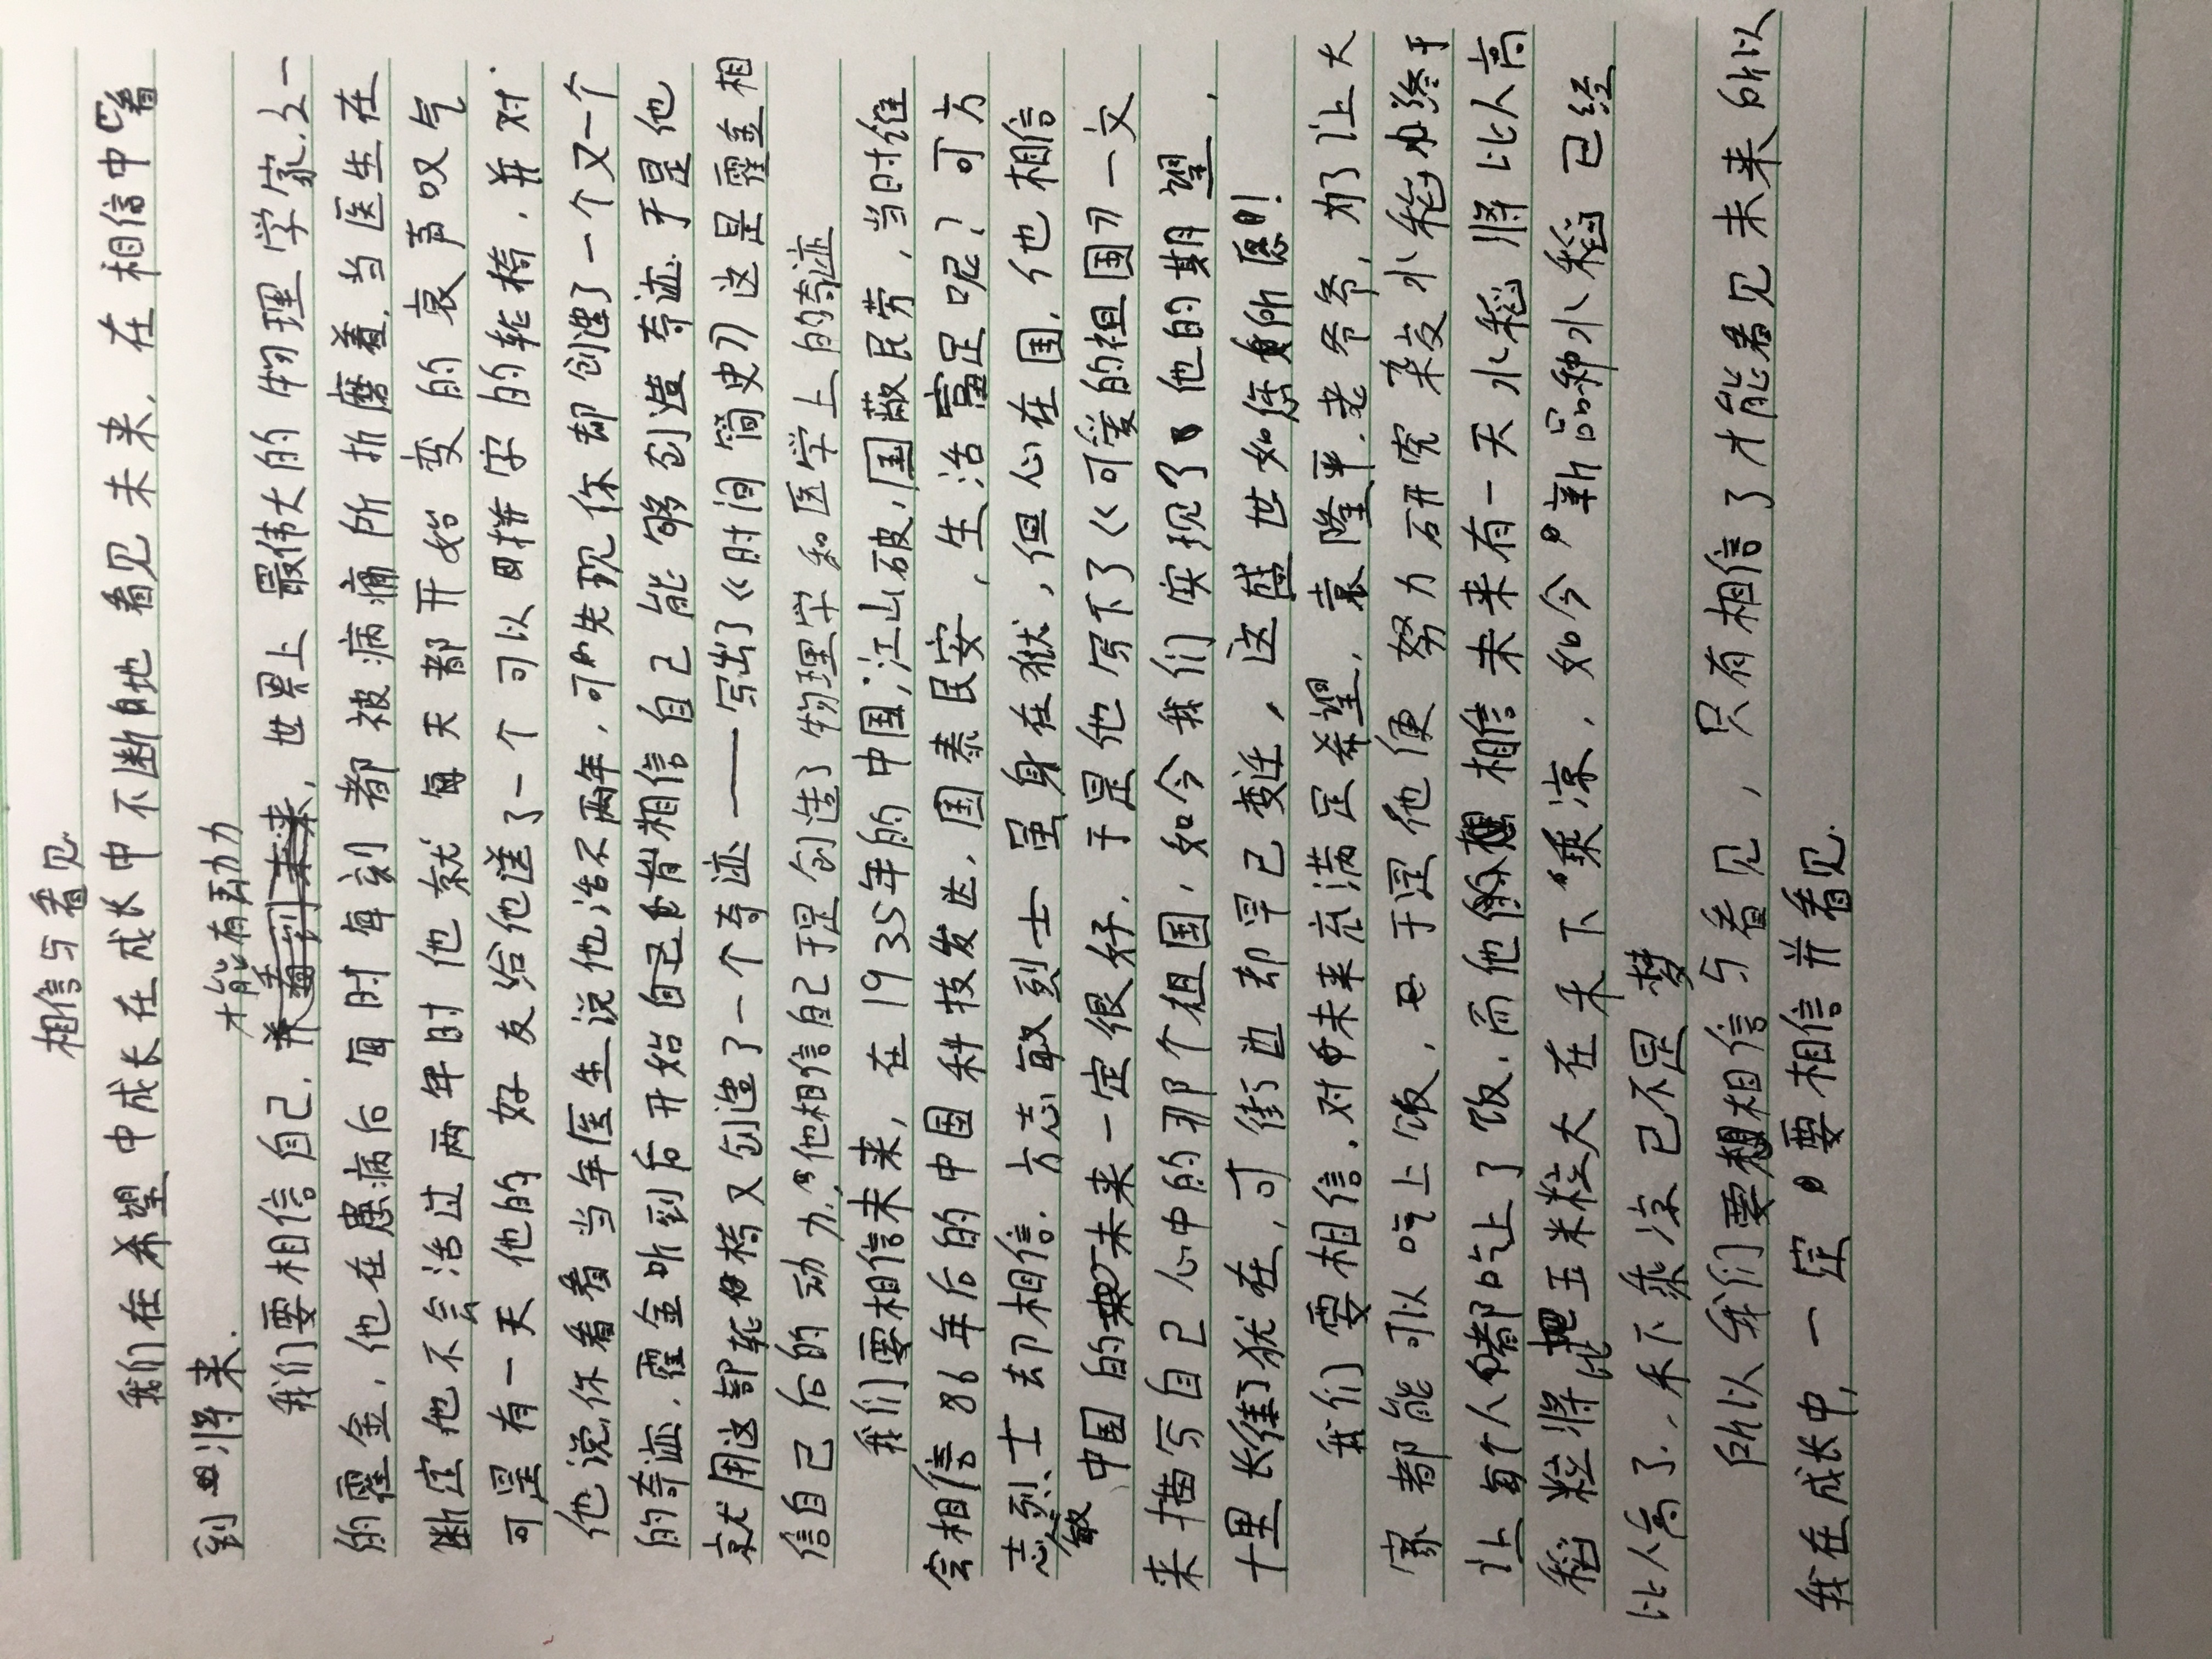 相信与看见
我们在希望中成长在成长中不断地看见未来,在相信中看
到将来.
才能有动力
我们要相信自己.并看到未来,世界上最伟大的物理学家之一
的霍金,他在患病后每时每刻都被病痛所折磨着.当医生在
断定他不会活过两年时他就每天都开始变的哀声叹气
可是有一天他的好友给他送了一个可以拼字的轮椅.并对.
他说你看看当年医生说他活不两年,可先现你却创造了一个又一个
的奇迹.霍金听到后开始自己相信自己能够创造奇迹.于是他
就用这部轮椅又创造了一个奇迹——写出了《时间简史》这是霍金相
信自己后的动力,他相信自己于是创造了物理学和医学上的奇迹
我们要相信未来,在1935年的中国,江山破,国蔽民劳,当时谁
会相信86年后的中国科技发达.国泰民安,生活富足呢?可方
志敏烈士却相信.方志敏烈士虽身在狱,但心在国,他也相信
中国的未来一定很好.于是他写下了《可爱的祖国》一文
来描写自己心中的那个祖国,如今我们实现了他的期望,
十里长街犹在,可街边却早已变迁,这盛世如您所愿!
我们要相信.对未来充满足希望,袁隆平.老爷爷,为了让大
家都能可以吃上饭,于是他便努力研究杂交水稻终于
让每个人都吃上了饭.而他相信未来有一天水稻将比人高
稻粒将比玉米粒大在禾下乘凉,如今新品种水稻已经
比人高了.禾下乘凉已不是梦
所以我们要相信与看见,只有相信了才能看见未来所以
我在成长中,一定要相信并看见.